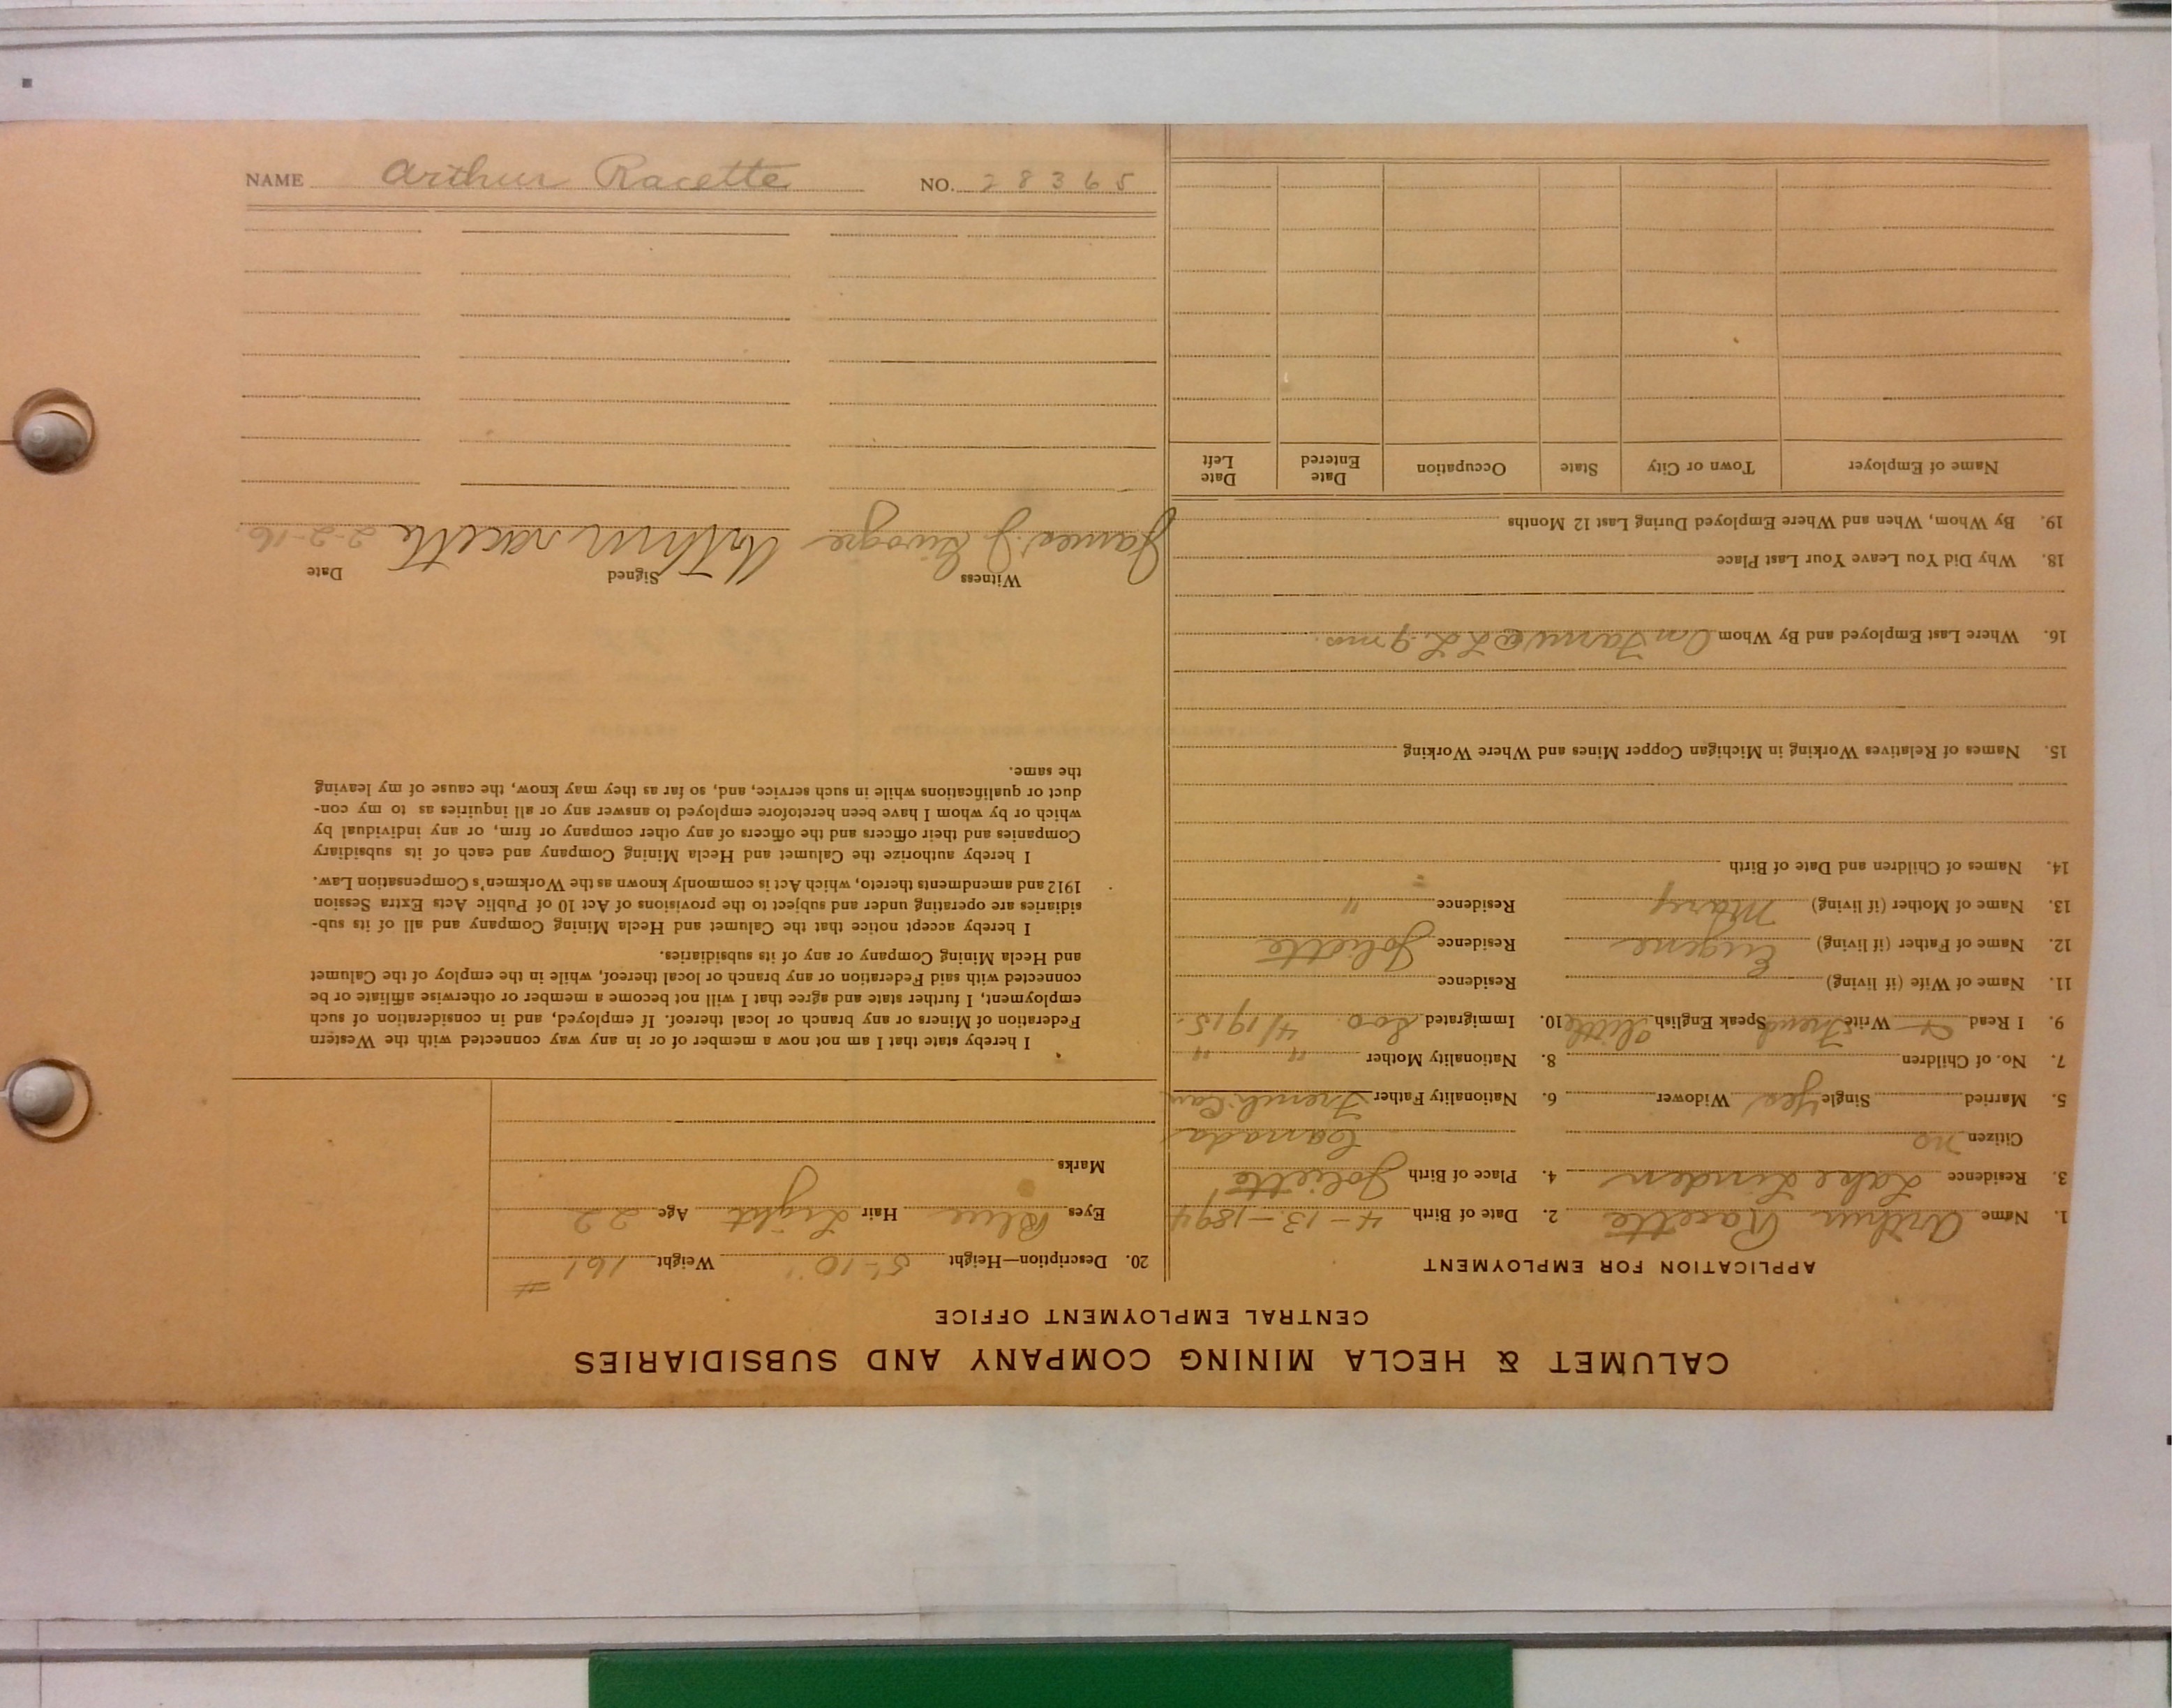 CALUMET & HECLA MINING COMPANY AND SUBSIDIARIES
CENTRAL EMPLOYMENT OFFICE
APPLICATION FOR EMPLOYMENT
1. Name Arthur Racette 2. Date of Birth 4-13-1894
3. Residence Lake Linden 4. Place of Birth Joliette
Citizen no Canada
5. Married Single Yes Widower 6. Nationality Father French Can
7. No. of Children 8. Nationality Mother " "
9. I Read & Write French Speak English little 10. Immigrated Soo 4/1915.
11. Name of Wife (if living) Residence
12. Name of Father (if living) Eugene Residence Joliette
13. Name of Mother (if living) Mary Residence "
14. Names of Children and Date of Birth
15. Names of Relatives Working in Michigan Copper Mines and Where Working
16. Where Last Employed and By Whom On Farm @ L.L. 9 mos.
18. Why Did You Leave Your Last Place
19. By Whom, When and Where Employed During Last 12 Months
Name of Employer Town or City State Occupation Date Entered Date Left
20. Description—Height 5'-10" Weight 161 #
Eyes Blue Hair Light Age 22
Marks
I hereby state that I am not now a member of or in any way connected with the Western
Federation of Miners or any branch or local thereof. If employed, and in consideration of such
employment, I further state and agree that I will not become a member or otherwise affiliate or be
connected with said Federation or any branch or local thereof, while in the employ of the Calumet
and Hecla Mining Company or any of its subsidiaries.
I hereby accept notice that the Calumet and Hecla Mining Company and all of its sub-
sidiaries are operating under and subject to the provisions of Act 10 of Public Acts Extra Session
1912 and amendments thereto, which Act is commonly known as the Workmen's Compensation Law.
I hereby authorize the Calumet and Hecla Mining Company and each of its subsidiary
Companies and their officers and the officers of any other company or firm, or any individual by
which or by whom I have been heretofore employed to answer any or all inquiries as to my con-
duct or qualifications while in such service, and, so far as they may know, the cause of my leaving
the same.
Witness Signed Date
James J. Arthur racette 2-2-16.
NAME Arthur Racette NO. 28365